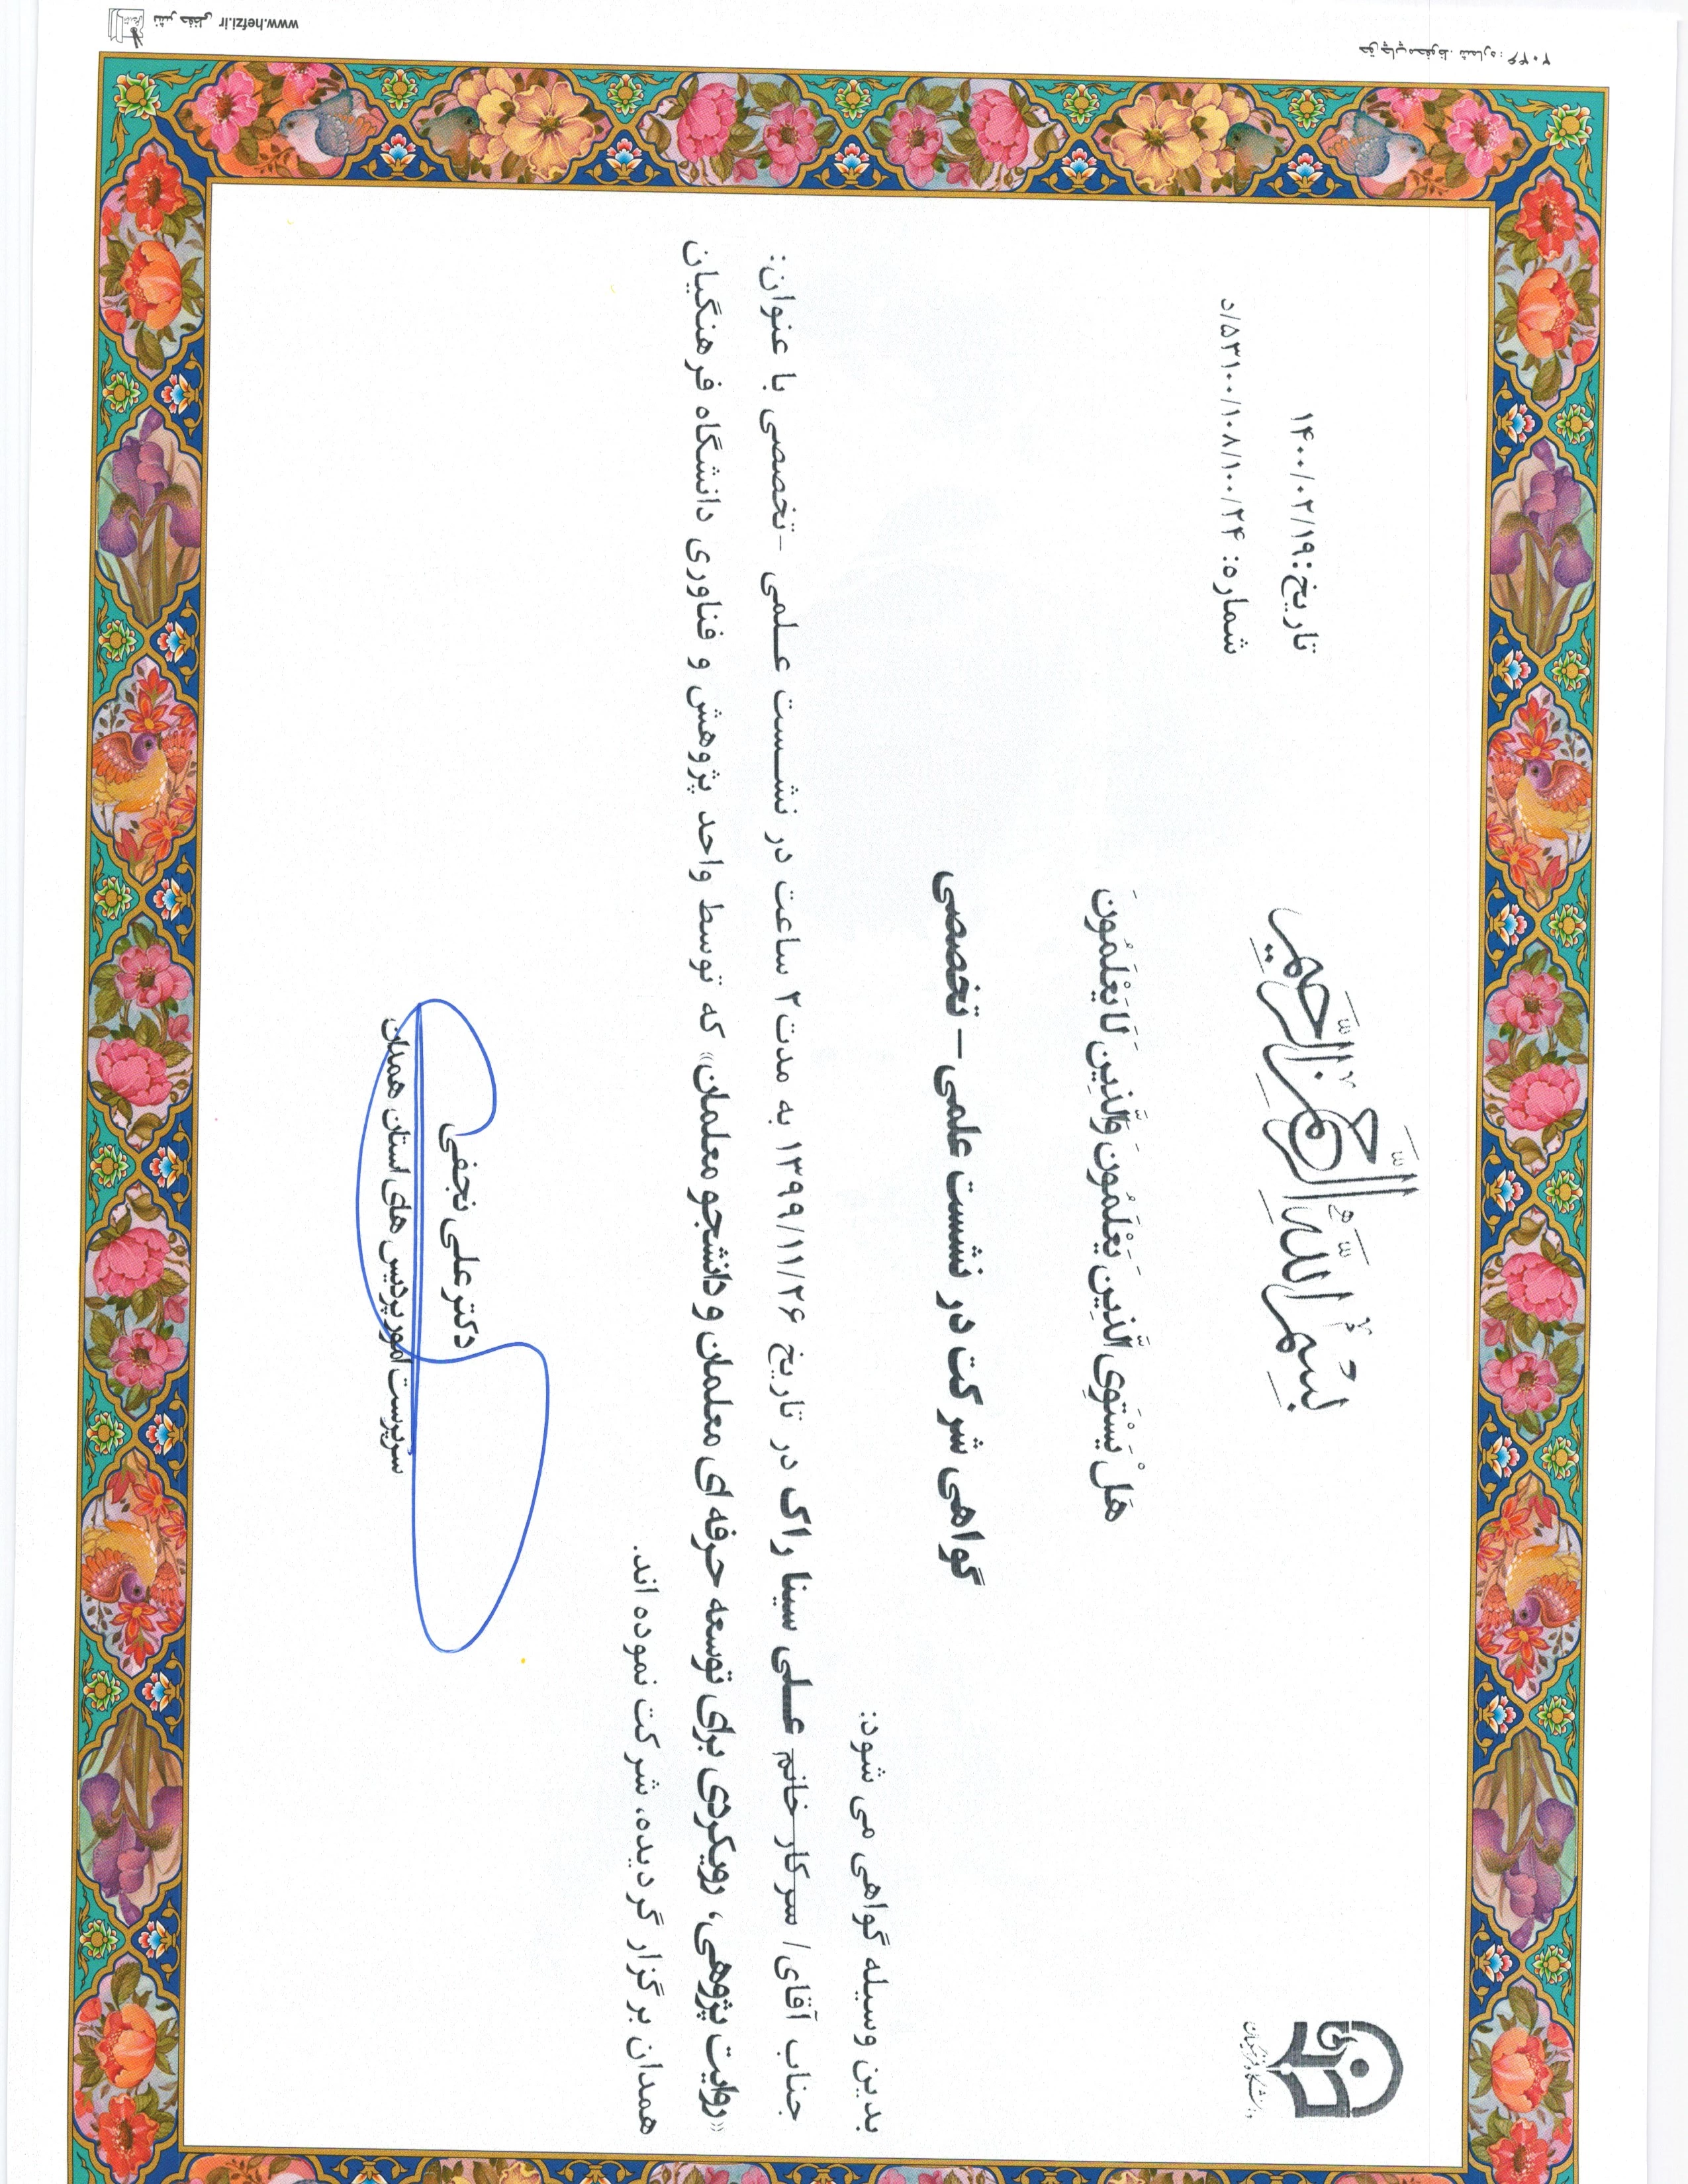 بسم الله الرحمن الرحیم
تاریخ: ۱۴۰۰/۰۲/۱۹
شماره: ۵۳۱۰۰/۱۰۸/۱۰۰/۲۴/د
دانشگاه فرهنگیان
هَلْ یَسْتَوِی الَّذِینَ یَعْلَمُونَ وَالَّذِینَ لَا یَعْلَمُونَ
گواهی شرکت در نشست علمی – تخصصی
بدین وسیله گواهی می شود:
جناب آقای/ سرکار خانم علی سینا راک در تاریخ ۱۳۹۹/۱۱/۲۶ به مدت ۲ ساعت در نشست علمی -تخصصی با عنوان:
«روایت پژوهی، رویکردی برای توسعه حرفه ای معلمان و دانشجو معلمان» که توسط واحد پژوهش و فناوری دانشگاه فرهنگیان
همدان برگزار گردیده، شرکت نموده اند.
دکتر علی نجفی
سرپرست امور پردیس های استان همدان
حق چاپ محفوظ. شماره: ۲۰۴۶
www.hefzi.ir نشر حفظی